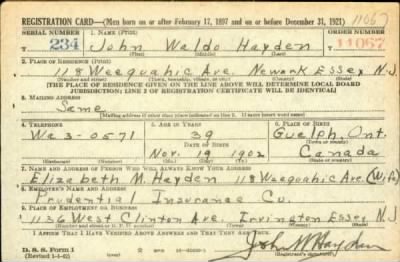 REGISTRATION CARD—(Men born on or after February 17, 1897 and on or before December 31, 1921) 11067
SERIAL NUMBER 1. NAME (Print) ORDER NUMBER
234 John Waldo Hayden 11067
2. PLACE OF RESIDENCE (Print)
118 Weequahic Ave. Newark Essex N.J.
(Number and street) (Town, township, village, or city) (County) (State)
[THE PLACE OF RESIDENCE GIVEN ON THE LINE ABOVE WILL DETERMINE LOCAL BOARD
JURISDICTION; LINE 2 OF REGISTRATION CERTIFICATE WILL BE IDENTICAL]
3. MAILING ADDRESS
Same
[Mailing address if other than place indicated on line 2. If same insert word same]
4. TELEPHONE 5. AGE IN YEARS 6. PLACE OF BIRTH
Wa 3-0571 39 Guelph, Ont.
DATE OF BIRTH (Town or county)
Nov. 19 1902 Canada
(Exchange) (Number) (Mo.) (Day) (Yr.) (State or country)
7. NAME AND ADDRESS OF PERSON WHO WILL ALWAYS KNOW YOUR ADDRESS
Elizabeth M. Hayden 118 Weequahic Ave. (Wife)
8. EMPLOYER'S NAME AND ADDRESS
Prudential Insurance Co.
9. PLACE OF EMPLOYMENT OR BUSINESS
1136 West Clinton Ave. Irvington Essex N.J.
(Number and street or R. F. D. number) (Town) (County) (State)
I AFFIRM THAT I HAVE VERIFIED ABOVE ANSWERS AND THAT THEY ARE TRUE.
D. S. S. Form 1
(Revised 1-1-42)
John W Hayden